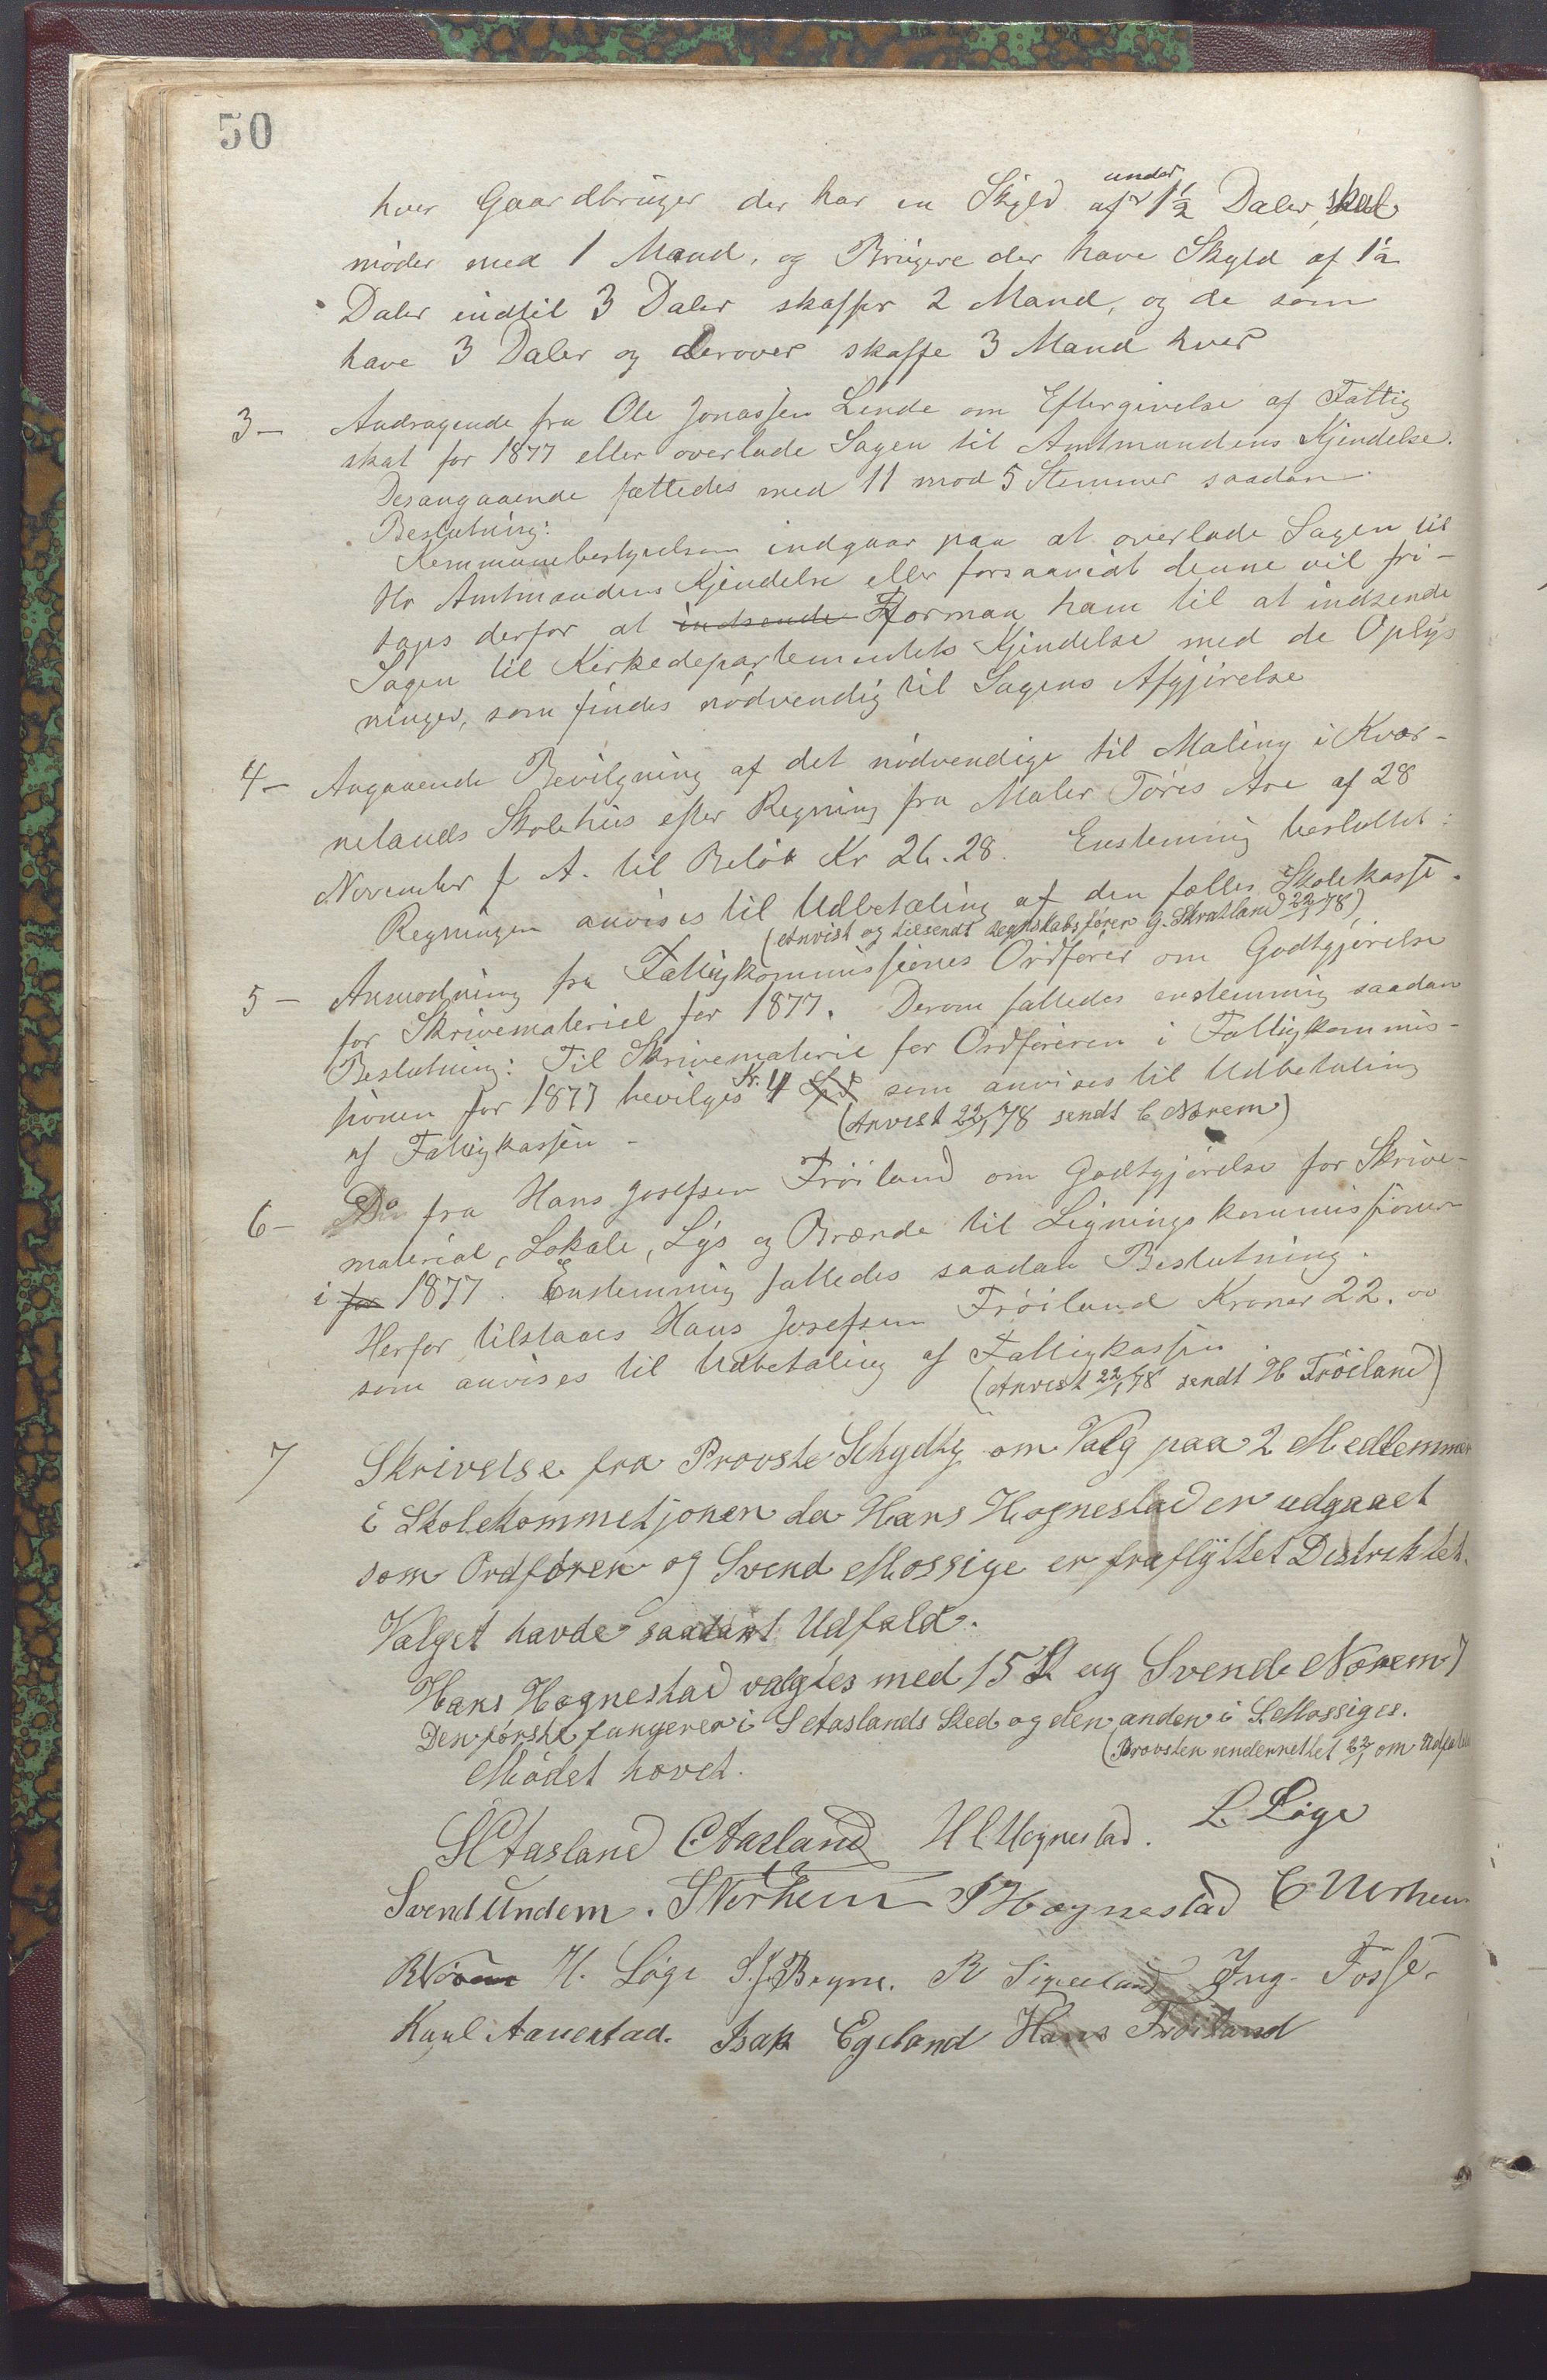 50
hver Gaardbruger der har en Skyld af under 1½ Daler, skal
møder med 1 Mand, og Brugere der have Skyld af 1½
Daler indtil 3 Daler skaffer 2 Mand, og de som
have 3 Daler og derover skaffe 3 Mand hver
3— Andragende fra Ole Jonassen Lende om Eftergivelse af Fattig
skat for 1877 eller overlade Sagen til Amtmandens Kjendelse.
Desangaaende fattedes med 11 mod 5 Stemmer saadan
Beslutning:
Kommunebestyrelsen indgaar paa at overlade Sagen til
Hr Amtmandens Kjendelse eller forsaavidt denne vil fri-
tages derfor at indsende Formaa ham til at indsende
Sagen til Kirkedepartementets Kjendelse med de Oplys
ninger, som findes nødvendig til Sagens Afgjørelse
4— Angaaende Bevilgning af det nødvendige til Maling i Kver-
nelands Skolehus efter Regning fra Maler Tøres Are af 28
November f A. til Beløb Kr 26.28. Enstemmig besluttet:
Regningen anvises til Udbetaling af den fælles Skolekasse.
(Anvist og tilsendt Regnskabsfører G. Skratland 22/1 78)
5— Anmodning fra Fattigkommissjones Ordfører om Godtgjørelse
for Skrivemateriel for 1877. Derom fattedes enstemmig saadan
Beslutning: Til Skrivemateriel for Ordføreren i Fattigkommis-
sionen for 1877 bevilges Kr. 4 Spd som anvises til Udbetaling
af Fattigkassen —
(Anvist 22/1 78 sendt C Norem)
6— Do fra Hans Josefsen Frøiland om Godtgjørelse for Skrive-
material, Lokale, Lys og Brænde til Ligningskommissionen
i for 1877. Enstemmig fattedes saadan Beslutning.
Herfor tilstaaes Hans Josefsen Frøiland Kroner 22.00
som anvises til Udbetaling af Fattigkassen.
(Anvist 22/1 78 sendt H Frøiland)
7 Skrivelse fra Provste Schydtz om Valg paa 2 Medlemmer
i Skolekommetjonen da Hans Hognestad er udgaaet
som Ordfører og Svend Mossige er fraflyttet Distriktet.
Valget havde saadant Udfald.
Hans Hognestad valgtes med 15 St og Svend Norem 7
Den første fungerer i S Aaslands Sted og den anden i S. Mossiges.
(Provsten underrettet 22/1 om Udfaldet
Mødet hævet.
S Aasland C. Aasland H L Hognestad. L. Løge
Svend Undem. S Norheim S Hognestad C Norheim
R Norem H. Løge S. J. Bryne. R Sigeland Ing. Fosse.
Karl Aanestad. Isak Egeland Hans Frøiland